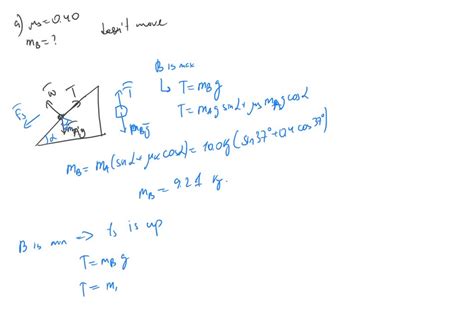 a) μs = 0.40
mB = ? doesn't move
B is max
↳ T = mBg
T = mAg sinα + μs mAg cosα
N T T
Fs mAg mBg
α
mB = mA(sinα + μs cosα) = 10.0kg(sin37° + 0.4 cos37°)
mB = 9.21 kg.
B is min → fs is up
T = mB g
T = m,